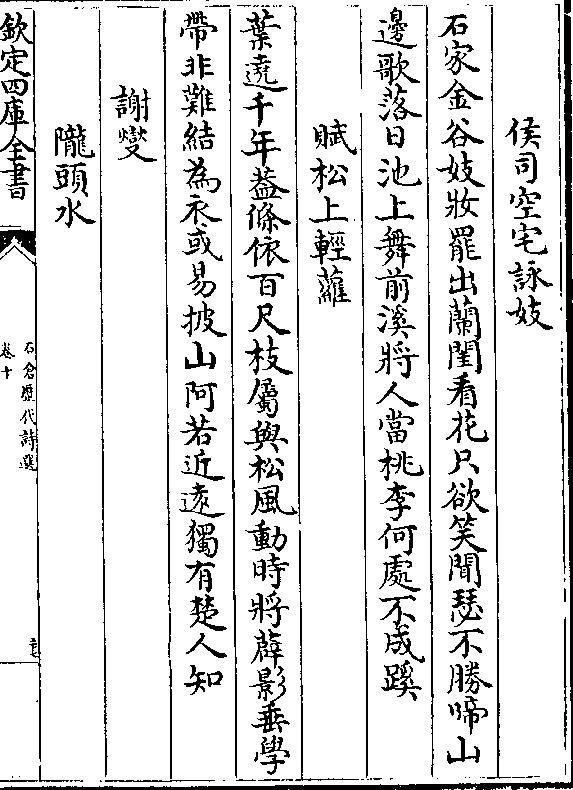 侯司空宅詠妓
石家金谷妓妝罷出蘭閨看花只欲笑聞瑟不勝啼山
邊歌落日池上舞前溪將人當桃李何處不成蹊
賦松上輕蘿
葉遶千年葢條依百尺枝屬與松風動時將薜影垂學
帶非難結為衣或易披山阿若近逺獨有楚人知
謝燮
隴頭水
欽定四庫全書
石倉歷代詩選
卷十